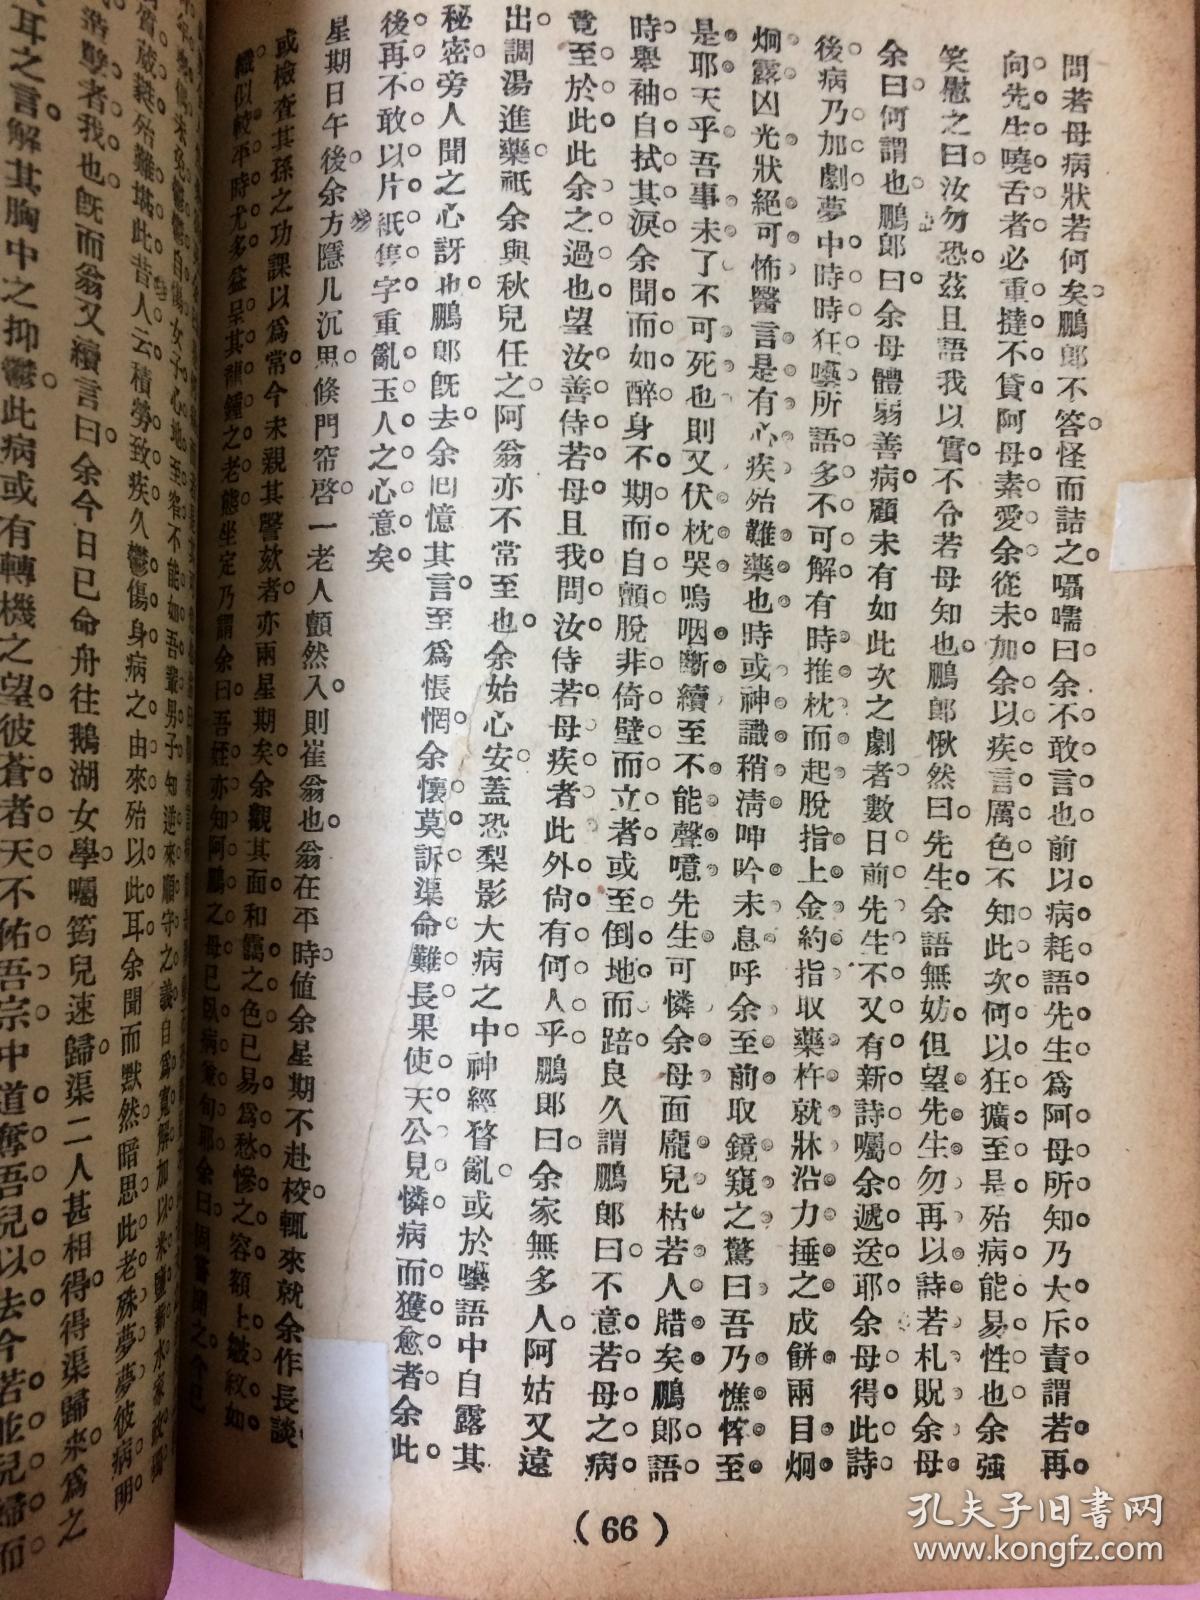 問若母病狀若何矣鵬郎不答怪而詰之囁嚅曰余不敢言也前以病耗語先生爲阿母所知乃大斥責謂若再
向先生曉舌者必重撻不貸阿母素愛余從未加余以疾言厲色不知此次何以狂獷至是殆病能易性也余強
笑慰之曰汝勿恐茲且語我以實不令若母知也鵬郎愀然曰先生余語無妨但望先生勿再以詩若札貺余母
余曰何謂也鵬郎曰余母體弱善病顧未有如此次之劇者數日前先生不又有新詩囑余遞送耶余母得此詩
後病乃加劇夢中時時狂囈所語多不可解有時推枕而起脫指上金約指取藥杵就牀沿力捶之成餅兩目炯
炯露凶光狀絕可怖醫言是有心疾殆難藥也時或神識稍淸呻吟未息呼余至前取鏡窺之驚曰吾乃憔悴至
是耶天乎吾事未了不可死也則又伏枕哭嗚咽斷續至不能聲噫先生可憐余母面龐兒枯若人腊矣鵬郎語
時舉袖自拭其淚余聞而如醉身不期而自顫脫非倚壁而立者或至倒地而踣良久謂鵬郎曰不意若母之病
竟至於此此余之過也望汝善侍若母且我問汝侍若母疾者此外尙有何人乎鵬郎曰余家無多人阿姑又遠
出調湯進藥祇余與秋兒任之阿翁亦不常至也余始心安蓋恐梨影大病之中神經瞀亂或於囈語中自露其
秘密旁人聞之心訝也鵬郎旣去余回憶其言至爲悵惘余懷莫訴渠命難長果使天公見憐病而獲愈者余此
後再不敢以片紙隻字重亂玉人之心意矣
星期日午後余方隱几沉思倏門帘啓一老人顫然入則崔翁也翁在平時値余星期不赴校輒來就余作長談
或檢查其孫之功課以爲常今未親其謦欬者亦兩星期矣余觀其面和靄之色已易爲愁慘之容額上皺紋如
織似較平時尤多益呈其龍鍾之老態坐定乃謂余曰吾姪亦知阿鵬之母已臥病兼旬耶余曰固嘗聞之今已
女子心地至窄不能如吾輩男子知逆來順守之義自爲寬解加以米鹽薪水家政獨
殆難堪此昔人云積勞致疾久鬱傷身病之由來殆以此耳余聞而默然暗思此老殊夢夢彼病明
造孽者我也旣而翁又續言曰余今日已命舟往鵝湖女學囑筠兒速歸渠二人甚相得得渠歸來爲之
耳之言解其胸中之抑鬱此病或有轉機之望彼蒼者天不佑吾宗中道奪吾兒以去今若並兒婦而
(66)
孔夫子旧书网
www.kongfz.com